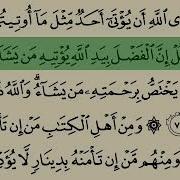 ٱللَّهِ أَن يُؤْتَىٰٓ أَحَدٌ مِّثْلَ مَآ أُوتِيتُ
لْ إِنَّ ٱلْفَضْلَ بِيَدِ ٱللَّهِ يُؤْتِيهِ مَن يَشَآ
يَخْتَصُّ بِرَحْمَتِهِۦ مَن يَشَآءُ ۗ وَٱللَّهُ ذ
۞ وَمِنْ أَهْلِ ٱلْكِتَٰبِ مَنْ إِن تَأ
وَمِنْهُم مَّنْ إِن تَأْمَنْهُ بِدِينَارٍ لَّا يُؤَدِّ